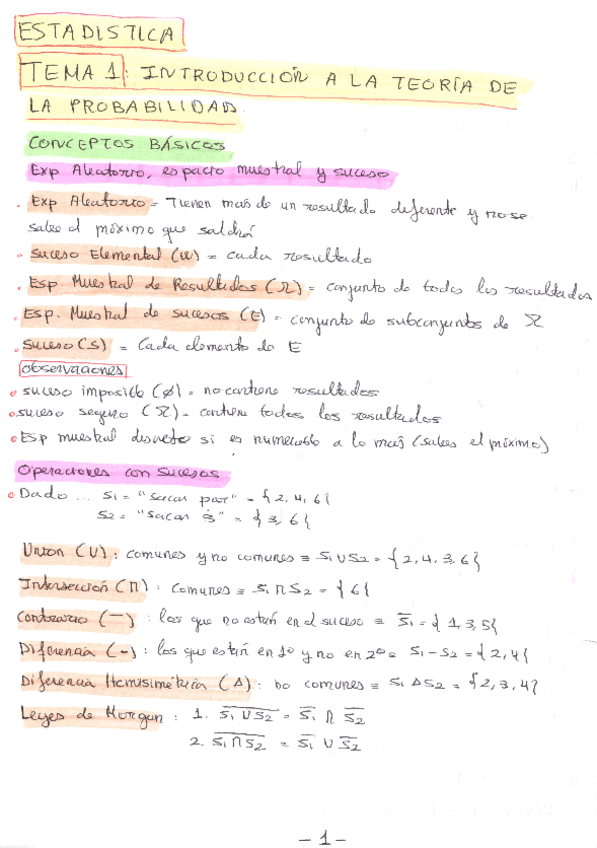 ESTADISTICA
TEMA 1: INTRODUCCIÓN A LA TEORÍA DE
LA PROBABILIDAD
CONCEPTOS BÁSICOS
Exp Aleatorio, espacio muestral y suceso
. Exp Aleatorio = Tienen mas de un resultado diferente y no se
sabe el próximo que saldrá
. Suceso Elemental (w) = cada resultado
. Esp. Muestral de Resultados (Ω) = conjunto de todos los resultados
. Esp. Muestral de sucesos (E) = conjunto de subconjuntos de Ω
. Suceso (S) = Cada elemento de E
observaciones
• suceso imposible (∅) = no contiene resultados
• suceso seguro (Ω) = contiene todos los resultados
• Esp muestral discreto si es numerable a lo mas (sabes el próximo)
Operaciones con sucesos
• Dado ... S1 = "sacar par" = {2, 4, 6}
S2 = "sacar 3̇" = {3, 6}
Union (U) : comunes y no comunes ≡ S1 U S2 = {2, 4, 3, 6}
Intersección (∩) : comunes ≡ S1 ∩ S2 = {6}
Contrario (—) : los que no estén en el suceso ≡ S̅1 = {1, 3, 5}
Diferencia (-) : los que estén en 1º y no en 2º ≡ S1 - S2 = {2, 4}
Diferencia Hemisimétrica (Δ) : no comunes ≡ S1 Δ S2 = {2, 3, 4}
Leyes de Morgan : 1. \overline{S1 U S2} = S̅1 ∩ S̅2
2. \overline{S1 ∩ S2} = S̅1 U S̅2
- 1 -